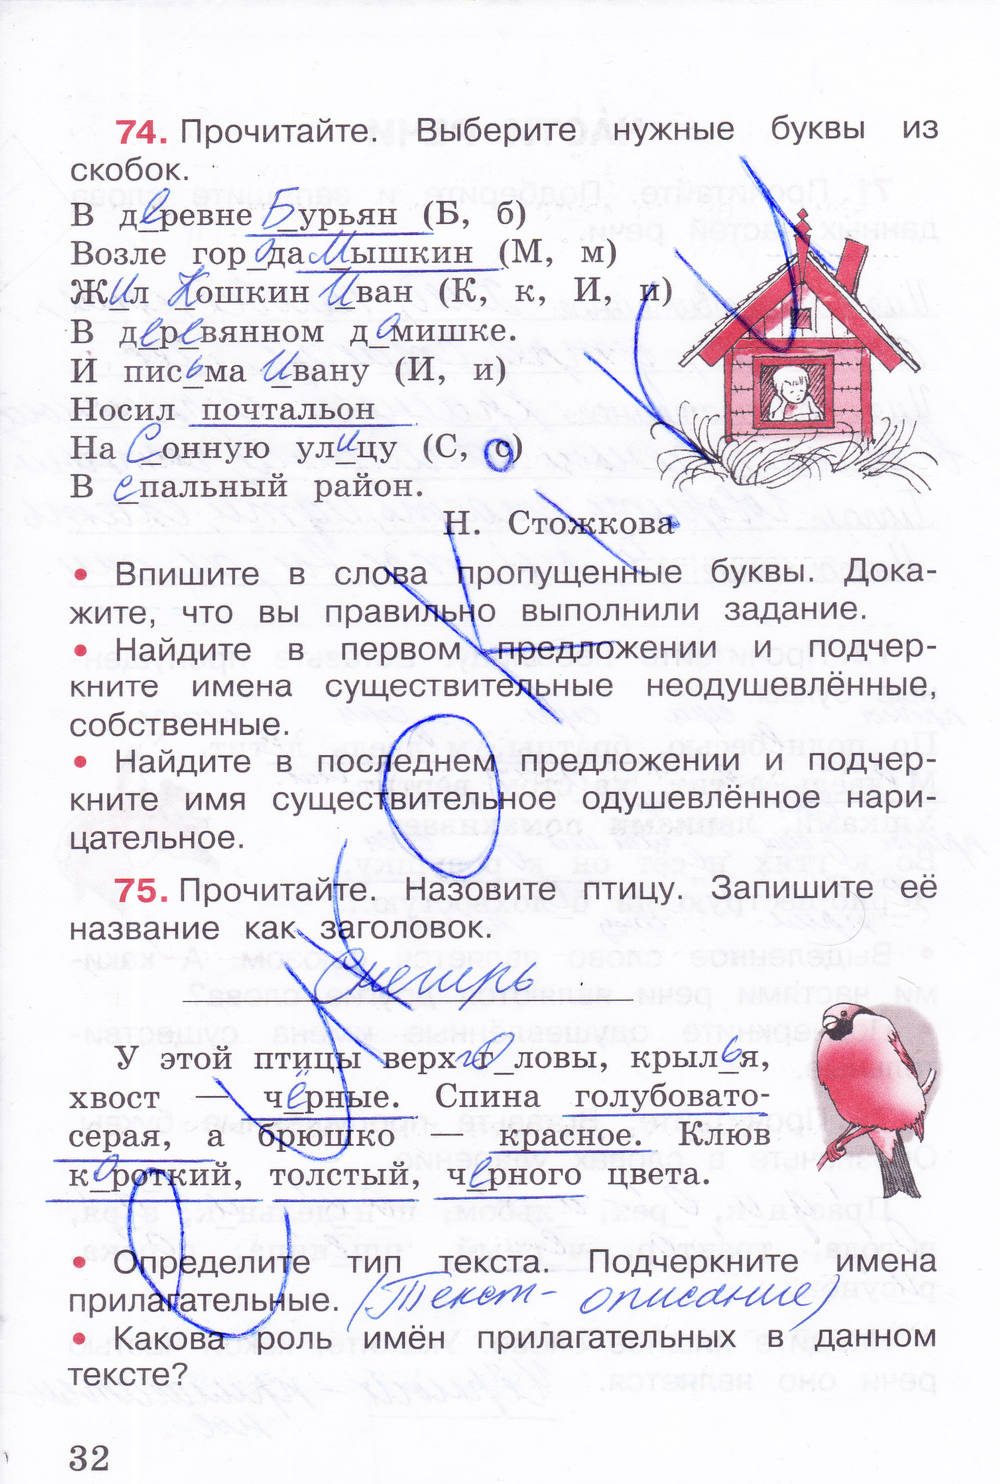 74. Прочитайте. Выберите нужные буквы из
скобок.
В деревне Бурьян (Б, б)
Возле города Мышкин (М, м)
Жил Кошкин Иван (К, к, И, и)
В деревянном домишке.
И письма Ивану (И, и)
Носил почтальон
На Сонную улицу (С, с)
В спальный район.
Н. Стожкова
• Впишите в слова пропущенные буквы. Дока-
жите, что вы правильно выполнили задание.
• Найдите в первом предложении и подчер-
кните имена существительные неодушевлённые,
собственные.
• Найдите в последнем предложении и подчер-
кните имя существительное одушевлённое нари-
цательное.
75. Прочитайте. Назовите птицу. Запишите её
название как заголовок.
Снегирь
У этой птицы верх головы, крылья,
хвост — чёрные. Спина голубовато-
серая, а брюшко — красное. Клюв
короткий, толстый, черного цвета.
• Определите тип текста. Подчеркните имена
прилагательные. (Текст- описание)
• Какова роль имён прилагательных в данном
тексте?
32